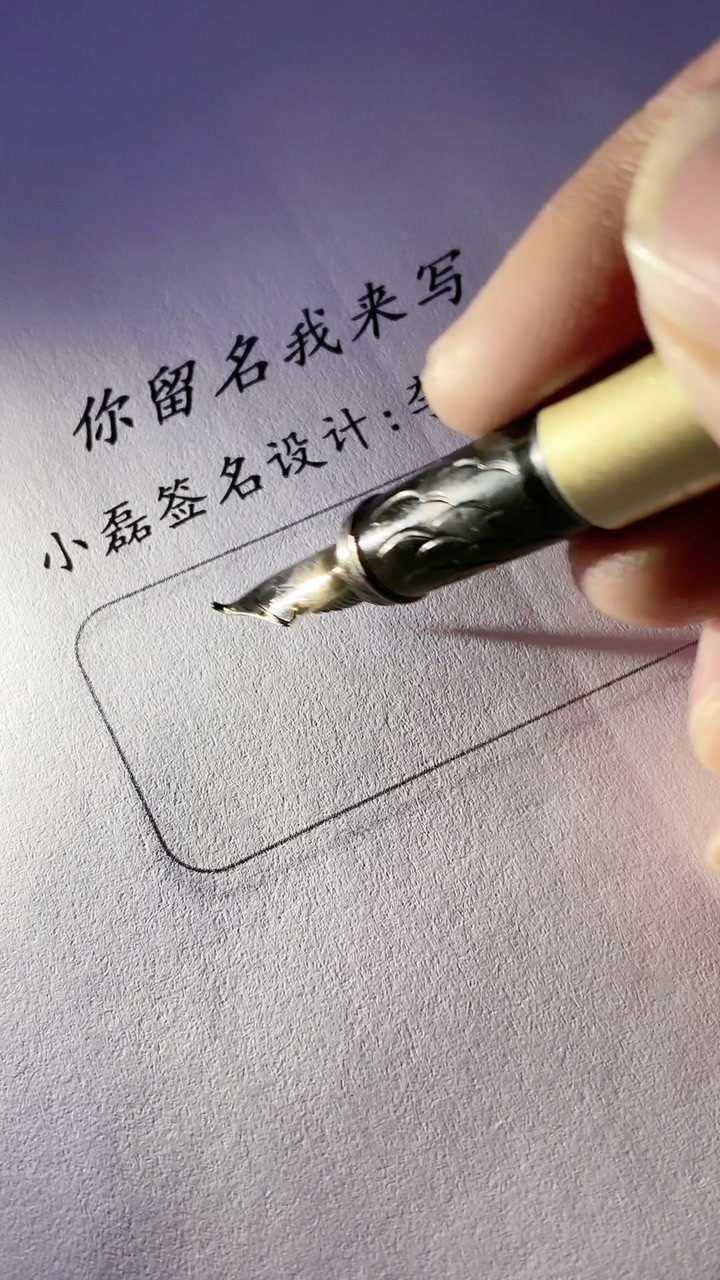 你留名我来写
小磊签名设计: